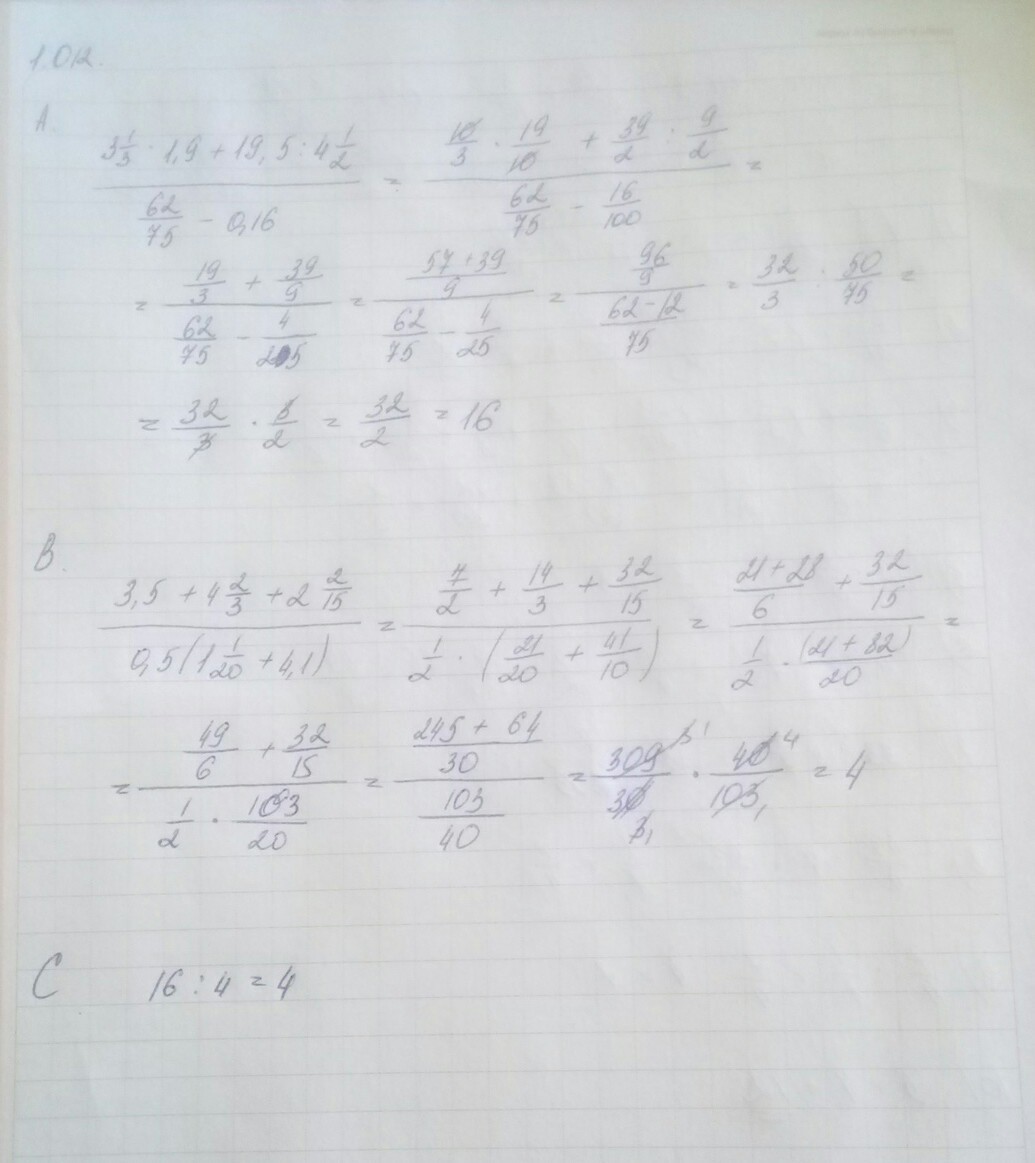 1.012.
A.
(3 1/3 · 1,9 + 19,5 : 4 1/2) / (62/75 - 0,16) = (10/3 · 19/10 + 39/2 · 9/2) / (62/75 - 16/100) =
= (19/3 + 39/9) / (62/75 - 4/25) = ((57+39)/9) / (62/75 - 4/25) = (96/9) / ((62-12)/75) = 32/3 · 50/75 =
= 32/3 · 3/2 = 32/2 = 16
B.
(3,5 + 4 2/3 + 2 2/15) / (0,5(1 1/20 + 4,1)) = (7/2 + 14/3 + 32/15) / (1/2 · (21/20 + 41/10)) = ((21+28)/6 + 32/15) / (1/2 · (21+82)/20) =
= (49/6 + 32/15) / (1/2 · 103/20) = ((245 + 64)/30) / (103/40) = 309/30 · 40/103 = 4
C 16 : 4 = 4